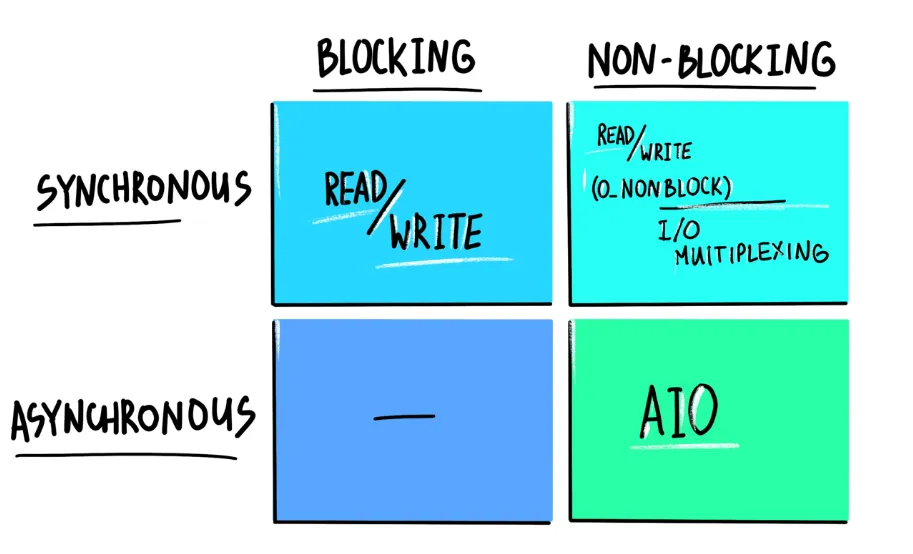 BLOCKING
NON-BLOCKING
SYNCHRONOUS
READ/WRITE
READ/WRITE
(O_NONBLOCK)
I/O
MUITIPLEXING
ASYNCHRONOUS
—
AIO